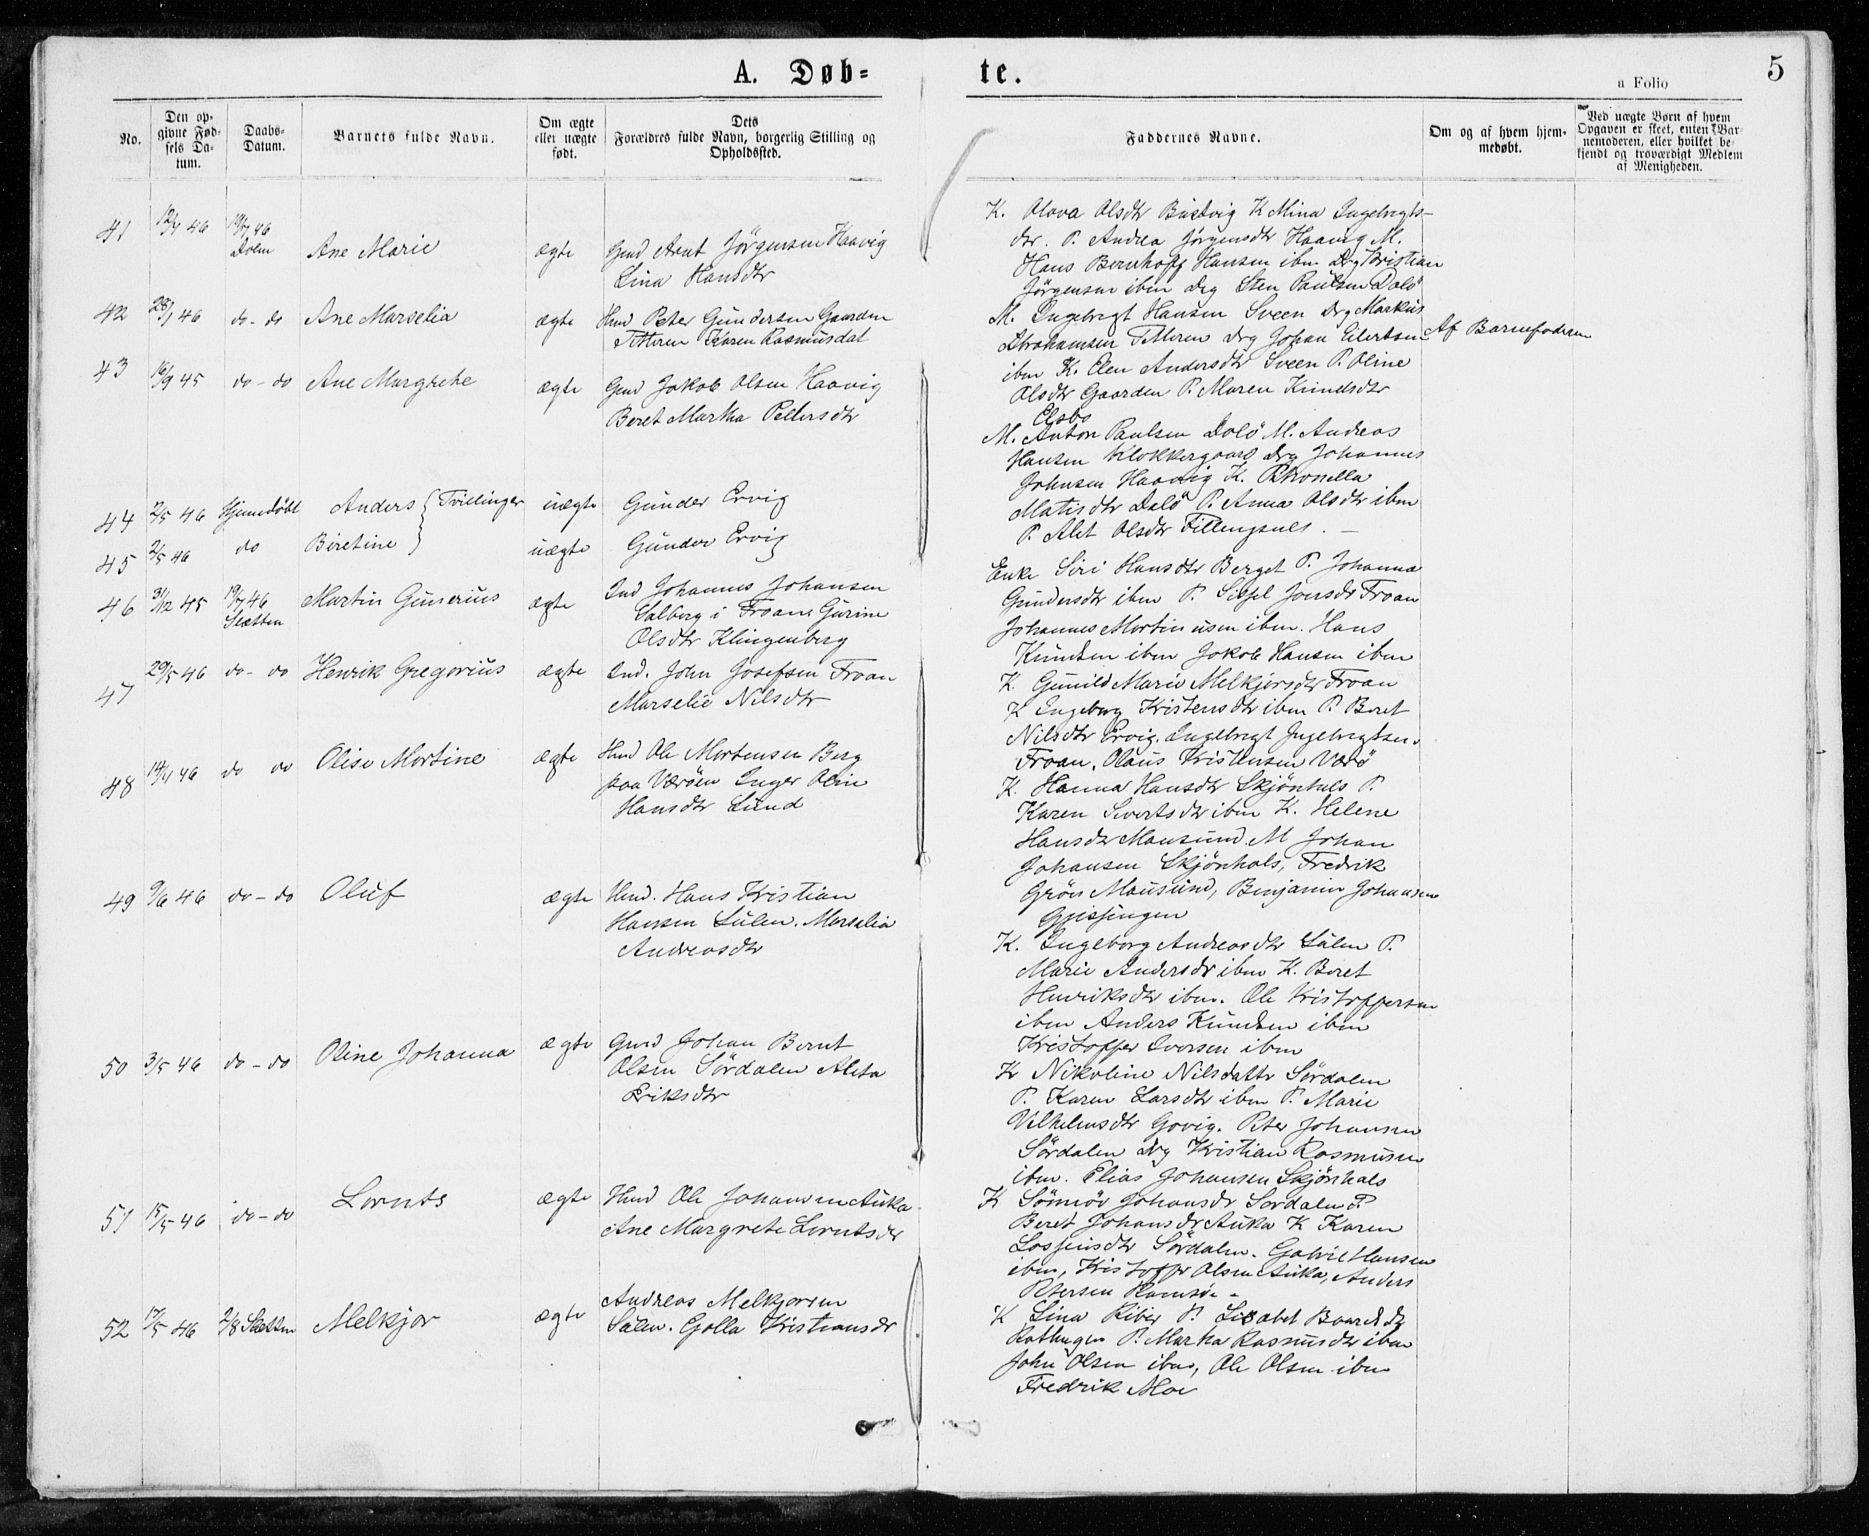 A. Døb-te.
5
a Folio
No.
Den opgivne Fødsels Datum.
Daabs-Datum.
Barnets fulde Navn.
Om ægte eller uægte født.
Dets Forældres fulde Navn, borgerlig Stilling og Opholdssted.
Faddernes Navne.
Om og af hvem hjemmedøbt.
Ved uægte Børn af hvem Opgaven er skeet, enten Barnemoderen, eller hvilket bekjendt og troværdigt Medlem af Menigheden.
41 12/4 46 19/7 46
Dolm Ane Marie ægte Gmd Arnt Jörgensen Haavig
Lina Hansdtr
K. Olava Olsdtr Bustvig K Mina Ingebrigts-
dtr. P. Andrea Jörgensdtr Haavig M.
Hans Bernhoff Hansen ibm Drg Kristian
Jörgensen ibm drg Sten Paulsen Dolö
42 28/1 46 do-do Ane Marselia ægte Hmd Peter Gundersen Gaarden
Titteren Karen Rasmusdat
M. Ingebrigt Hansen Sveen Drg Markus
Abrahamsen Titteren Drg Johan Eilertsen
ibm K. Elen Andersdtr Sveen P. Oline
Olsdtr Gaarden P. Maren Knudsdtr
Elsbo
Af Barnefaderen
43 16/9 45 do-do Ane Margrethe ægte Gmd Jakob Olsen Haavig
Beret Martha Pettersdtr
M. Anton Paulsen Dolö M. Andreas
Hansen Klokkergaard Drg Johannes
Johnsen Haavig K. Petronella
Matisdtr Dolö P. Anna Olsdtr ibm
P. Alet Olsdtr Fillingsnes. –
44 2/5 46 Hjemdöbt Anders { Tvillinger uægte Gunder Ervig
45 2/5 46 do Beretine uægte Gunder Ervig
46 31/12 45 19/7 46
Sletten Martin Gunerius ægte Ind Johannes Johansen
Salberg i Froan Gurine
Olsdtr Klingenberg
Enke Siri Hansdtr Berget P. Johanna
Gundersdtr ibm P. Sissel Jonsdtr Froan
Johannes Mortinusen ibm. Hans
Knudsen ibm Jakob Hansen ibm
47 29/5 46 do-do Henrik Gregorius ægte Ind. John Josefsen Froan
Marselie Nilsdtr
K Gunild Marie Melkjorsdtr Froan
K Ingeborg Kristensdtr ibm P. Beret
Nilsdtr Ervig. Ingebrigt Ingebrigtsen
Froan, Olaus Kristensen Værö
48 14/4 46 do do Olise Mortine ægte Hmd Ole Mortensen Berg
paa Væröen Inger Oline
Hansdtr Lund
K. Hanna Hansdtr Skjönhals P.
Karen Sivertsdtr ibm K. Helene
Hansdtr Mausund M Johan
Johansen Skjönhals, Fredrik
Grön Mausund, Benjamin Johansen
Gjessingen
49 9/6 46 do-do Oluf ægte Hmd. Hans Kristian
Hansen Sulen. Marselia
Andreasdtr
K. Ingeborg Andreasdtr Sulen P.
Marie Andersdtr ibm K. Beret
Henriksdtr ibm. Ole Kristoffersen
ibm Anders Knudsen ibm
Kristoffer Iversen ibm
50 3/5 46 do-do Oline Johanna ægte Gmd Johan Bernt
Olsen Sördalen Aleta
Eriksdtr
K Nikoline Nilsdattr Sördalen
P. Karen Larsdtr ibm P. Marie
Vilhelmsdtr Govig. Peter Johansen
Sördalen Drg Kristian Rasmusen
ibm. Elias Johansen Skjönhals
51 15/5 46 do-do Lornts ægte Hmd Ole Johansen Auka
Ane Margrete Lorntsdtr
K Sönnöv Johansdr Sordalen P
Beret Johansdr Auka K Karen
Sördalen. Gabriel Hansen
ibm, Kristoffer Olsen Auka, Anders
Petersen Ramsöe –
52 17/5 46 2/8 Sletten Melkjor ægte Andreas Melkjorsen
Sulen. Golla Kristiansdr
K Lina Riber P. Lisabet Baardsdtr
P. Martha Rasmusdtr ibm
John Olsen ibm, Ole Olsen ibm
Fredrik Moe